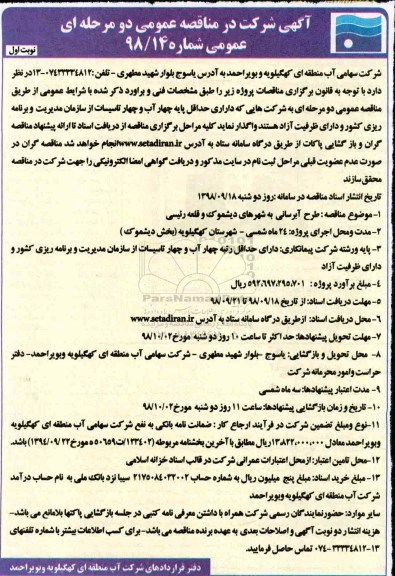 آگهی شرکت در مناقصه عمومی دو مرحله ای
عمومی شماره ۹۸/۱۴
نوبت اول
شرکت سهامی آب منطقه ای کهگیلویه و بویراحمد به آدرس یاسوج بلوار شهید مطهری - تلفن:۰۷۴۳۳۳۳۴۸۱۲-۱۳ در نظر
دارد با توجه به قانون برگزاری مناقصات پروژه زیر را طبق مشخصات فنی و برآورد ذکر شده با شرایط عمومی از طریق
مناقصه عمومی دو مرحله ای به شرکت هایی که دارای حداقل پایه چهار آب و چهار تاسیسات از سازمان مدیریت و برنامه
ریزی کشور و دارای ظرفیت آزاد هستند واگذار نماید کلیه مراحل برگزاری مناقصه از دریافت اسناد تا ارائه پیشنهاد مناقصه
گران و باز گشایی پاکات از طریق درگاه سامانه ستاد به آدرس www.setadiran.ir انجام خواهد شد مناقصه گران در
صورت عدم عضویت قبلی مراحل ثبت نام در سایت مذکور و دریافت گواهی امضا الکترونیکی را جهت شرکت در مناقصه
محقق سازند
تاریخ انتشار اسناد مناقصه در سامانه :روز دو شنبه ۱۳۹۸/۰۹/۱۸
۱-موضوع مناقصه : طرح آبرسانی به شهرهای دیشموک و قلعه رئیسی
۲-مدت ومحل اجرای پروژه: ۲۴ ماه شمسی - شهرستان کهگیلویه (بخش دیشموک)
۳- پایه ورشته شرکت پیمانکاری: دارای حداقل رتبه چهار آب و چهار تاسیسات از سازمان مدیریت و برنامه ریزی کشور و
دارای ظرفیت آزاد
۴-مبلغ برآورد پروژه : ۵۹۲،۶۹۷،۲۹۵،۷۰۱ ریال
۵-مهلت دریافت اسناد: از تاریخ ۹۸/۰۹/۱۸ تا ۹۸/۰۹/۲۱
۶-محل دریافت اسناد: ازطریق درگاه سامانه ستاد به آدرس www.setadiran.ir
۷-مهلت تحویل پیشنهادها: حداکثر تا ساعت ۱۰ روز دو شنبه مورخ ۹۸/۱۰/۰۲
۸- محل تحویل و بازگشایی: یاسوج -بلوار شهید مطهری - شرکت سهامی آب منطقه ای کهگیلویه وبویراحمد- دفتر
حراست وامور محرمانه شرکت
۹-مدت اعتبار پیشنهادها: سه ماه شمسی
۱۰-تاریخ و زمان بازگشایی پیشنهادها: ساعت ۱۱ روز دو شنبه مورخ ۹۸/۱۰/۰۲
۱۱-نوع ومبلغ تضمین شرکت در فرآیند ارجاع کار : ضمانت نامه بانکی به نفع شرکت سهامی آب منطقه ای کهگیلویه
وبویراحمد معادل ۱۳،۸۲۲،۰۰۰،۰۰۰ ریال مطابق با آخرین بخشنامه مربوطه (۱۲۳۴۰۲/ت۵۰۶۵۹ه مورخ ۱۳۹۴/۰۹/۲۲) باشد.
۱۲-محل تامین اعتبار: ازمحل اعتبارات عمرانی شرکت در قالب اسناد خزانه اسلامی
۱۳-مبلغ خرید اسناد: مبلغ پنج میلیون ریال به شماره حساب ۲۱۷۵۰۸۴۰۳۲۰۰۲ سیبا نزد بانک ملی به نام حساب درآمد
شرکت آب منطقه ای کهگیلویه وبویراحمد
سایر موارد: حضورنمایندگان رسمی شرکت همراه با داشتن معرفی نامه کتبی در جلسه بازگشایی پاکتها بلامانع می باشد-
هزینه انتشار دو نوبت آگهی و اصلاحات بعدی به عهده برنده مناقصه می باشد- برای کسب اطلاعات بیشتر با شماره تلفنهای
۰۷۴-۳۳۳۳۴۸۱۲-۱۳ تماس حاصل فرمایید.
دفتر قراردادهای شرکت آب منطقه ای کهگیلویه وبویراحمد